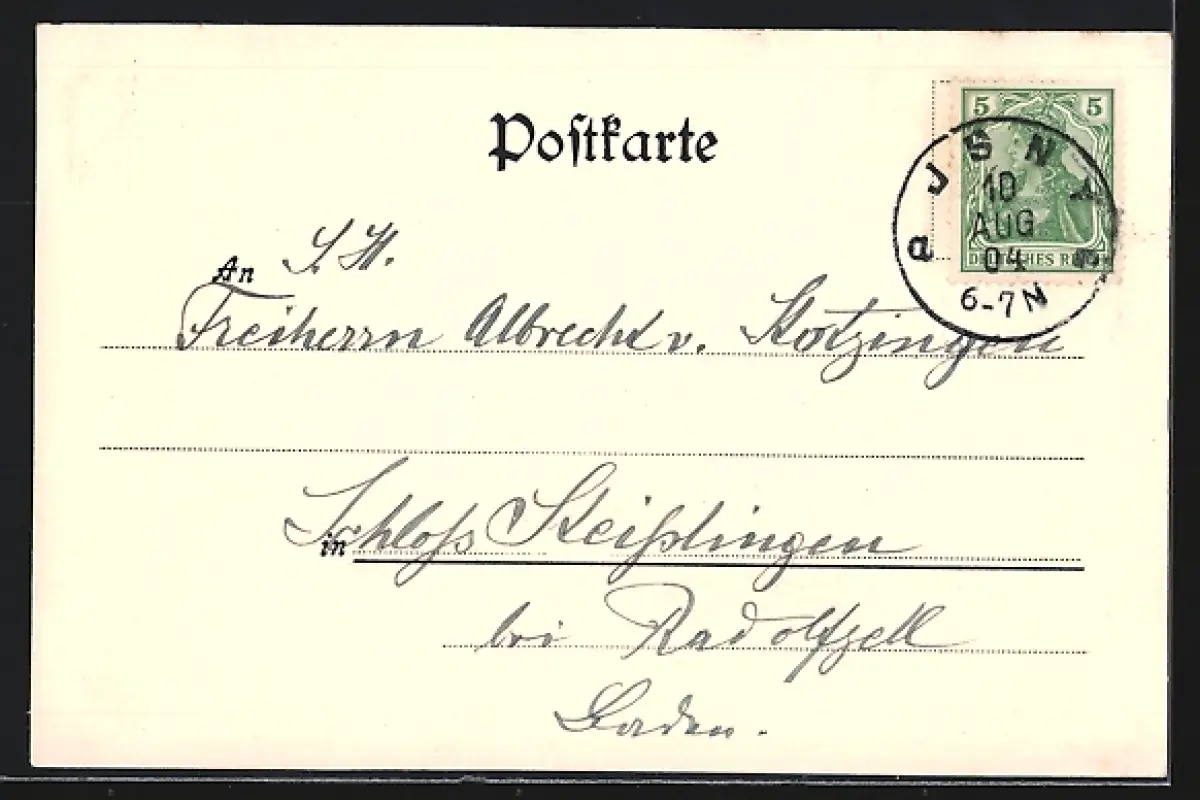 Postkarte
5 5
DEUTSCHES REICH
10
AUG
04
6-7N
An S. H.
Freiherrn Albrecht v. Stotzingen
in Schloß Steißlingen
bei Radolfzell
Baden.